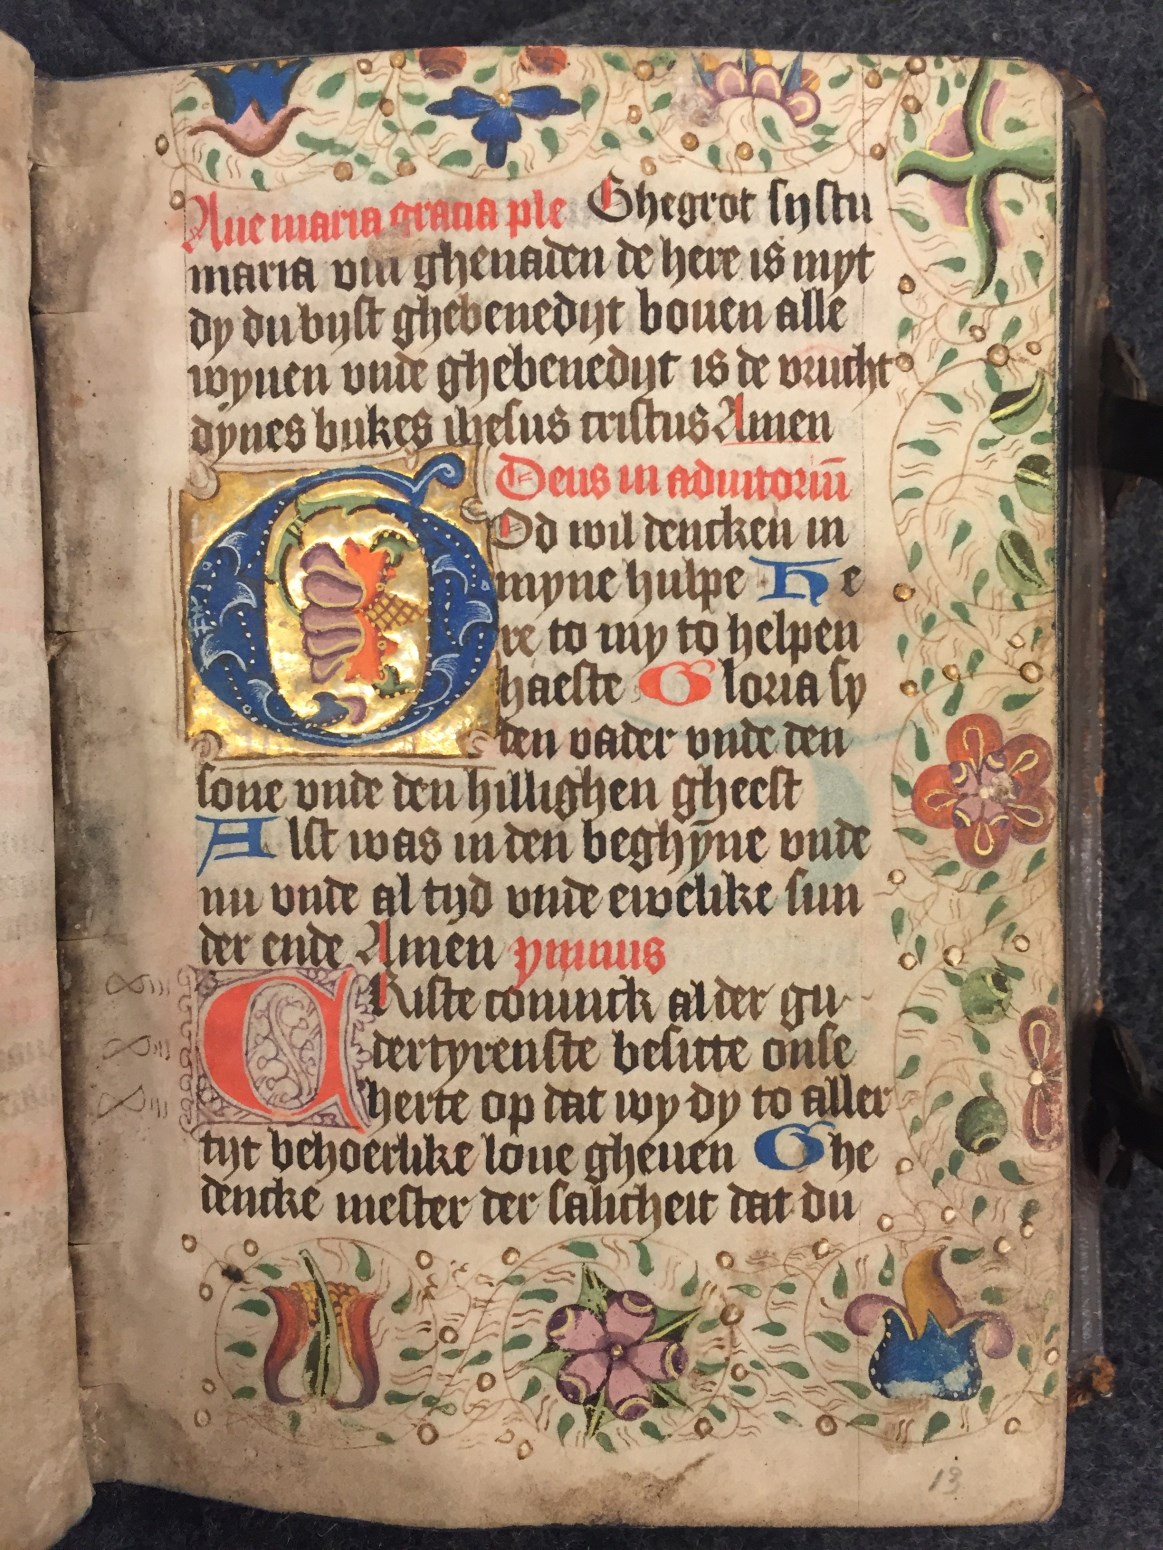 Aue maria gracia ple Ghegrot systu
maria vul ghenaden de here is myt
dy du byst ghebenedyt bouen alle
wyuen vnde ghebenedyt is de vrucht
dynes bukes ihesus cristus Amen
Deus in adiutoriū
God wil dencken in
myne hulpe He
re to my to helpen
haeste Gloria sy
den vader vnde den
sone vnde den hillighen gheest
Alst was in den beghȳne vnde
nu vnde al tyd vnde ewelike sun
der ende Amen ymnus
CRiste coninck alder gu
dertyrenste besitte onse
herte op dat wy dy to aller
tyt behoerlike loue gheuen Ghe
dencke mester der salicheit dat du
13